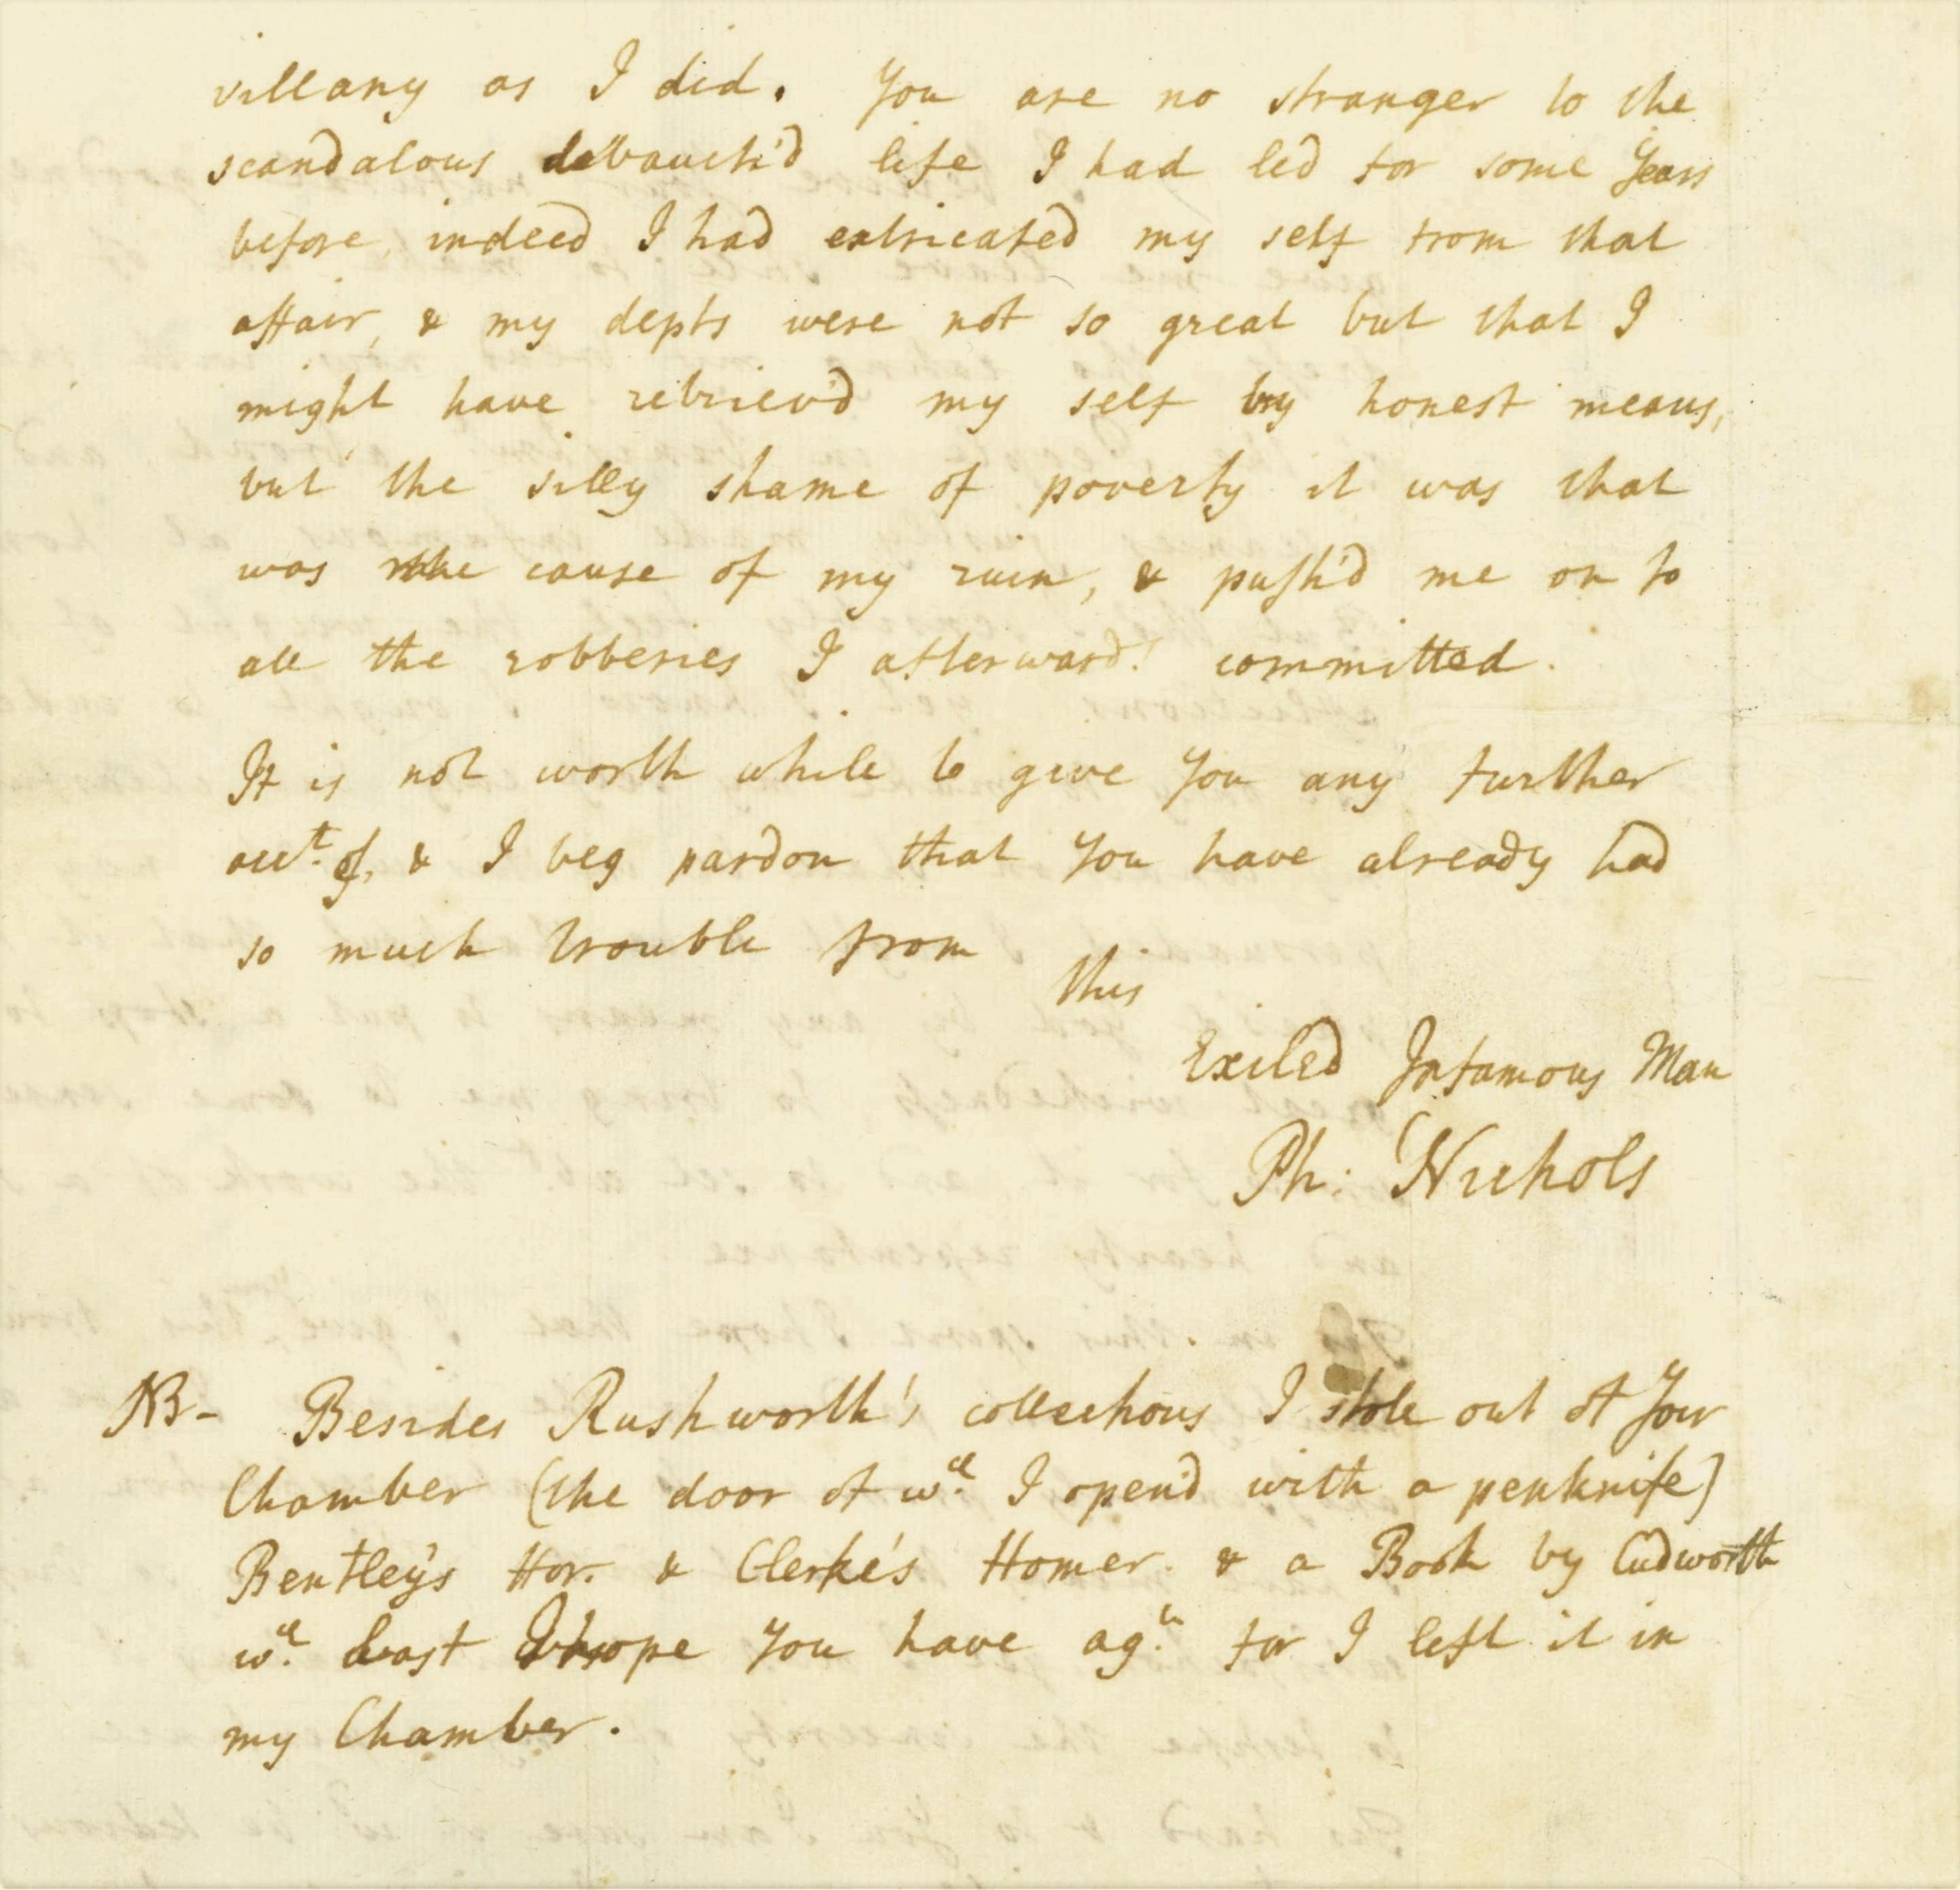 villany as I did. You are no stranger to the
scandalous debauch'd life I had led for some Years
before, indeed I had extricated my self from that
affair, & my depts were not so great but that I
might have retriev'd my self by honest means,
but the silly shame of poverty it was that
was the cause of my ruin, & push'd me on to
all the robberies I afterwards committed.
It is not worth while to give You any further
acct. of, & I beg pardon that You have already had
so much trouble from
this
Exiled Infamous Man
Ph: Nichols
NB- Besides Rushworth's collections I stole out of Your
Chamber (the door of wch. I open'd with a penknife)
Bentley's Hor. & Clerke's Homer. & a Book by Cudworth
wch. last I hope You have agn. for I left it in
my Chamber.